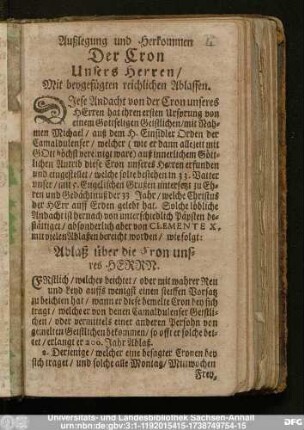 Außlegung und Herkommen
Der Cron
Unsers Herren/
Mit beygefügten reichlichen Ablassen.
DIese Andacht von der Cron unseres
HErren hat ihren ersten Ursprung von
einem Gottseligen Geistlichen/ mit Nah-
men Michael/ auß dem H. Einsidler Orden der
Camaldulenser/ welcher (wie er dann allezeit mit
GOtt höchst vereinigt ware) auß innerlichem Gött-
lichen Antrib diese Cron unseres Herren erfunden
und eingestellet/ welche solte bestehen in 33. Vatter
unser/ mit 5. Englischen Grüssen untersetzt zu Eh-
ren und Gedächtnus der 33 Jahr/ welche Christus
der HErr auff Erden gelebt hat. Solche löbliche
Andacht ist hernach von unterschiedlich Päpsten be-
stättiget/ absonderlich aber von CLEMENTE X.
mit vielen Ablaßen bereicht worden/ wie folgt:
Ablaß über die Cron uns-
res HERRN.
ERstlich/ welches beichtet/ oder mit wahrer Reu
und Leyd auffs wenigst einen steiffen Vorsatz
zu beichten hat/ wann er diese bemelte Cron bey sich
tragt/ welche er von denen Camaldulenser Geistli-
chen/ oder vermittels einer anderen Persohn von
gemelten Geistlichen bekommen/ so offt er solche bet-
tet/ erlangt er 200. Jahr Ablaß.
2. Derjenige/ welcher eine besagter Cronen bey
sich traget/ und solche alle Montag/ Mittwochen
Frey,
Universitäts- und Landesbibliothek Sachsen-Anhalt
urn:nbn:de:gbv:3:1-1192015415-1738749754-15
DFG